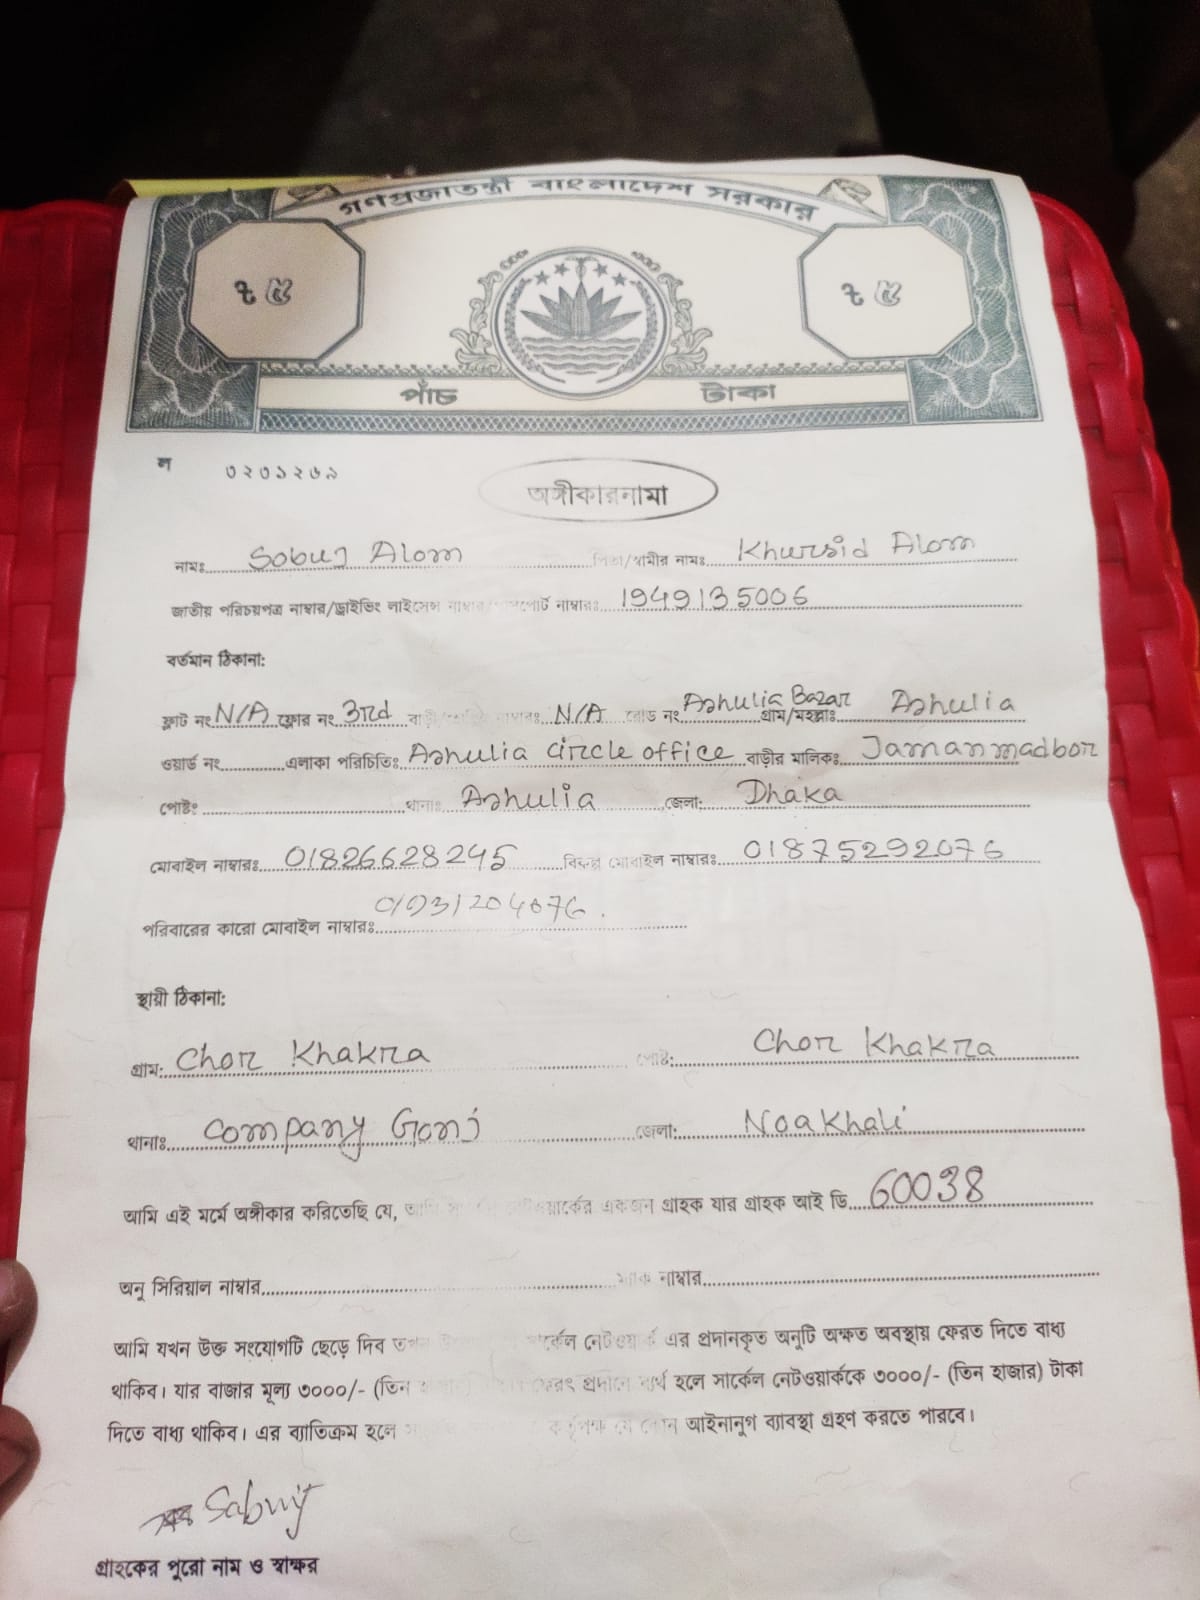 গণপ্রজাতন্ত্রী বাংলাদেশ সরকার
৳ ৫ ৳ ৫
পাঁচ টাকা
ল ৩২৩১২৬৯
অঙ্গীকারনামা
নামঃ Sobuj Alom পিতা/স্বামীর নামঃ Khursid Alom
জাতীয় পরিচয়পত্র নাম্বার/ড্রাইভিং লাইসেন্স নাম্বার/পাসপোর্ট নাম্বারঃ 1949135006
বর্তমান ঠিকানা:
ফ্লাট নং N/A ফ্লোর নং 3rd নাম্বারঃ N/A রোড নং Ashulia Bazar গ্রাম/মহল্লাঃ Ashulia
ওয়ার্ড নং এলাকা পরিচিতিঃ Ashulia circle office বাড়ীর মালিকঃ Jaman madbor
পোষ্টঃ থানাঃ Ashulia জেলা: Dhaka
মোবাইল নাম্বারঃ 01826628245 বিকল্প মোবাইল নাম্বারঃ 01875292076
পরিবারের কারো মোবাইল নাম্বারঃ
স্থায়ী ঠিকানা:
গ্রাম: Chor Khakra পোষ্ট: Chor Khakra
থানাঃ Company Gonj জেলা: Noakhali
আমি এই মর্মে অঙ্গীকার করিতেছি যে, আমি একজন গ্রাহক যার গ্রাহক আই ডি 60038
অনু সিরিয়াল নাম্বার ম্যাক নাম্বার
আমি যখন উক্ত সংযোগটি ছেড়ে দিব তখন সার্কেল নেটওয়ার্ক এর প্রদানকৃত অনুটি অক্ষত অবস্থায় ফেরত দিতে বাধ্য
থাকিব। যার বাজার মূল্য ৩০০০/- (তিন ফেরৎ প্রদানে ব্যর্থ হলে সার্কেল নেটওয়ার্ককে ৩০০০/- (তিন হাজার) টাকা
দিতে বাধ্য থাকিব। এর ব্যাতিক্রম হলে কর্তৃপক্ষ যে কোন আইনানুগ ব্যাবস্থা গ্রহণ করতে পারবে।
Sabuj
গ্রাহকের পুরো নাম ও স্বাক্ষর